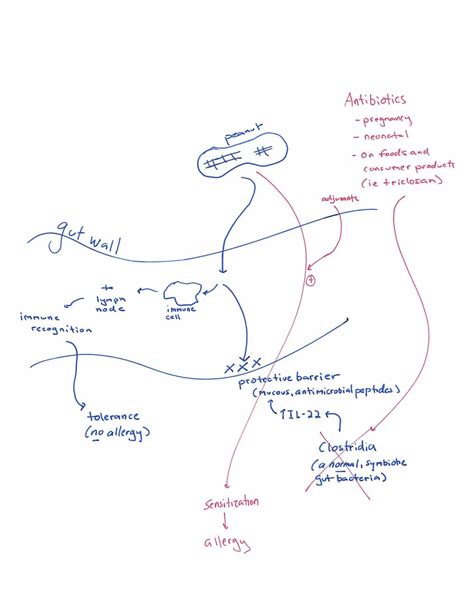 Antibiotics
- pregnancy
- neonatal
- on foods and
consumer products
(ie triclosan)
peanut
adjuvants
gut wall
+
immune
cell
to
lymph
node
immune
recognition
xxx
protective barrier
(mucous, antimicrobial peptides)
↑IL-22
tolerance
(no allergy)
Clostridia
(a normal, symbiotic
gut bacteria)
Sensitization
allergy